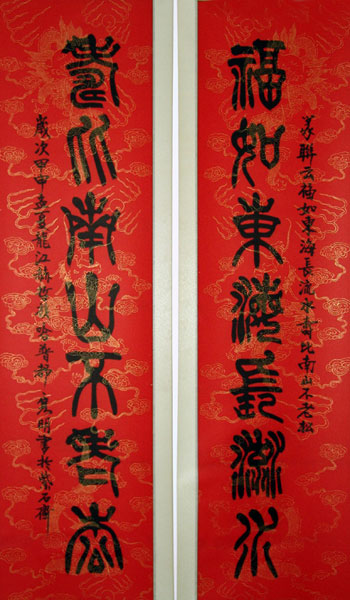 篆聯云福如東海長流水壽比南山不老松
福如東海長流水
壽比南山不老松
歲次甲申孟夏龍江 明書於紫石齋